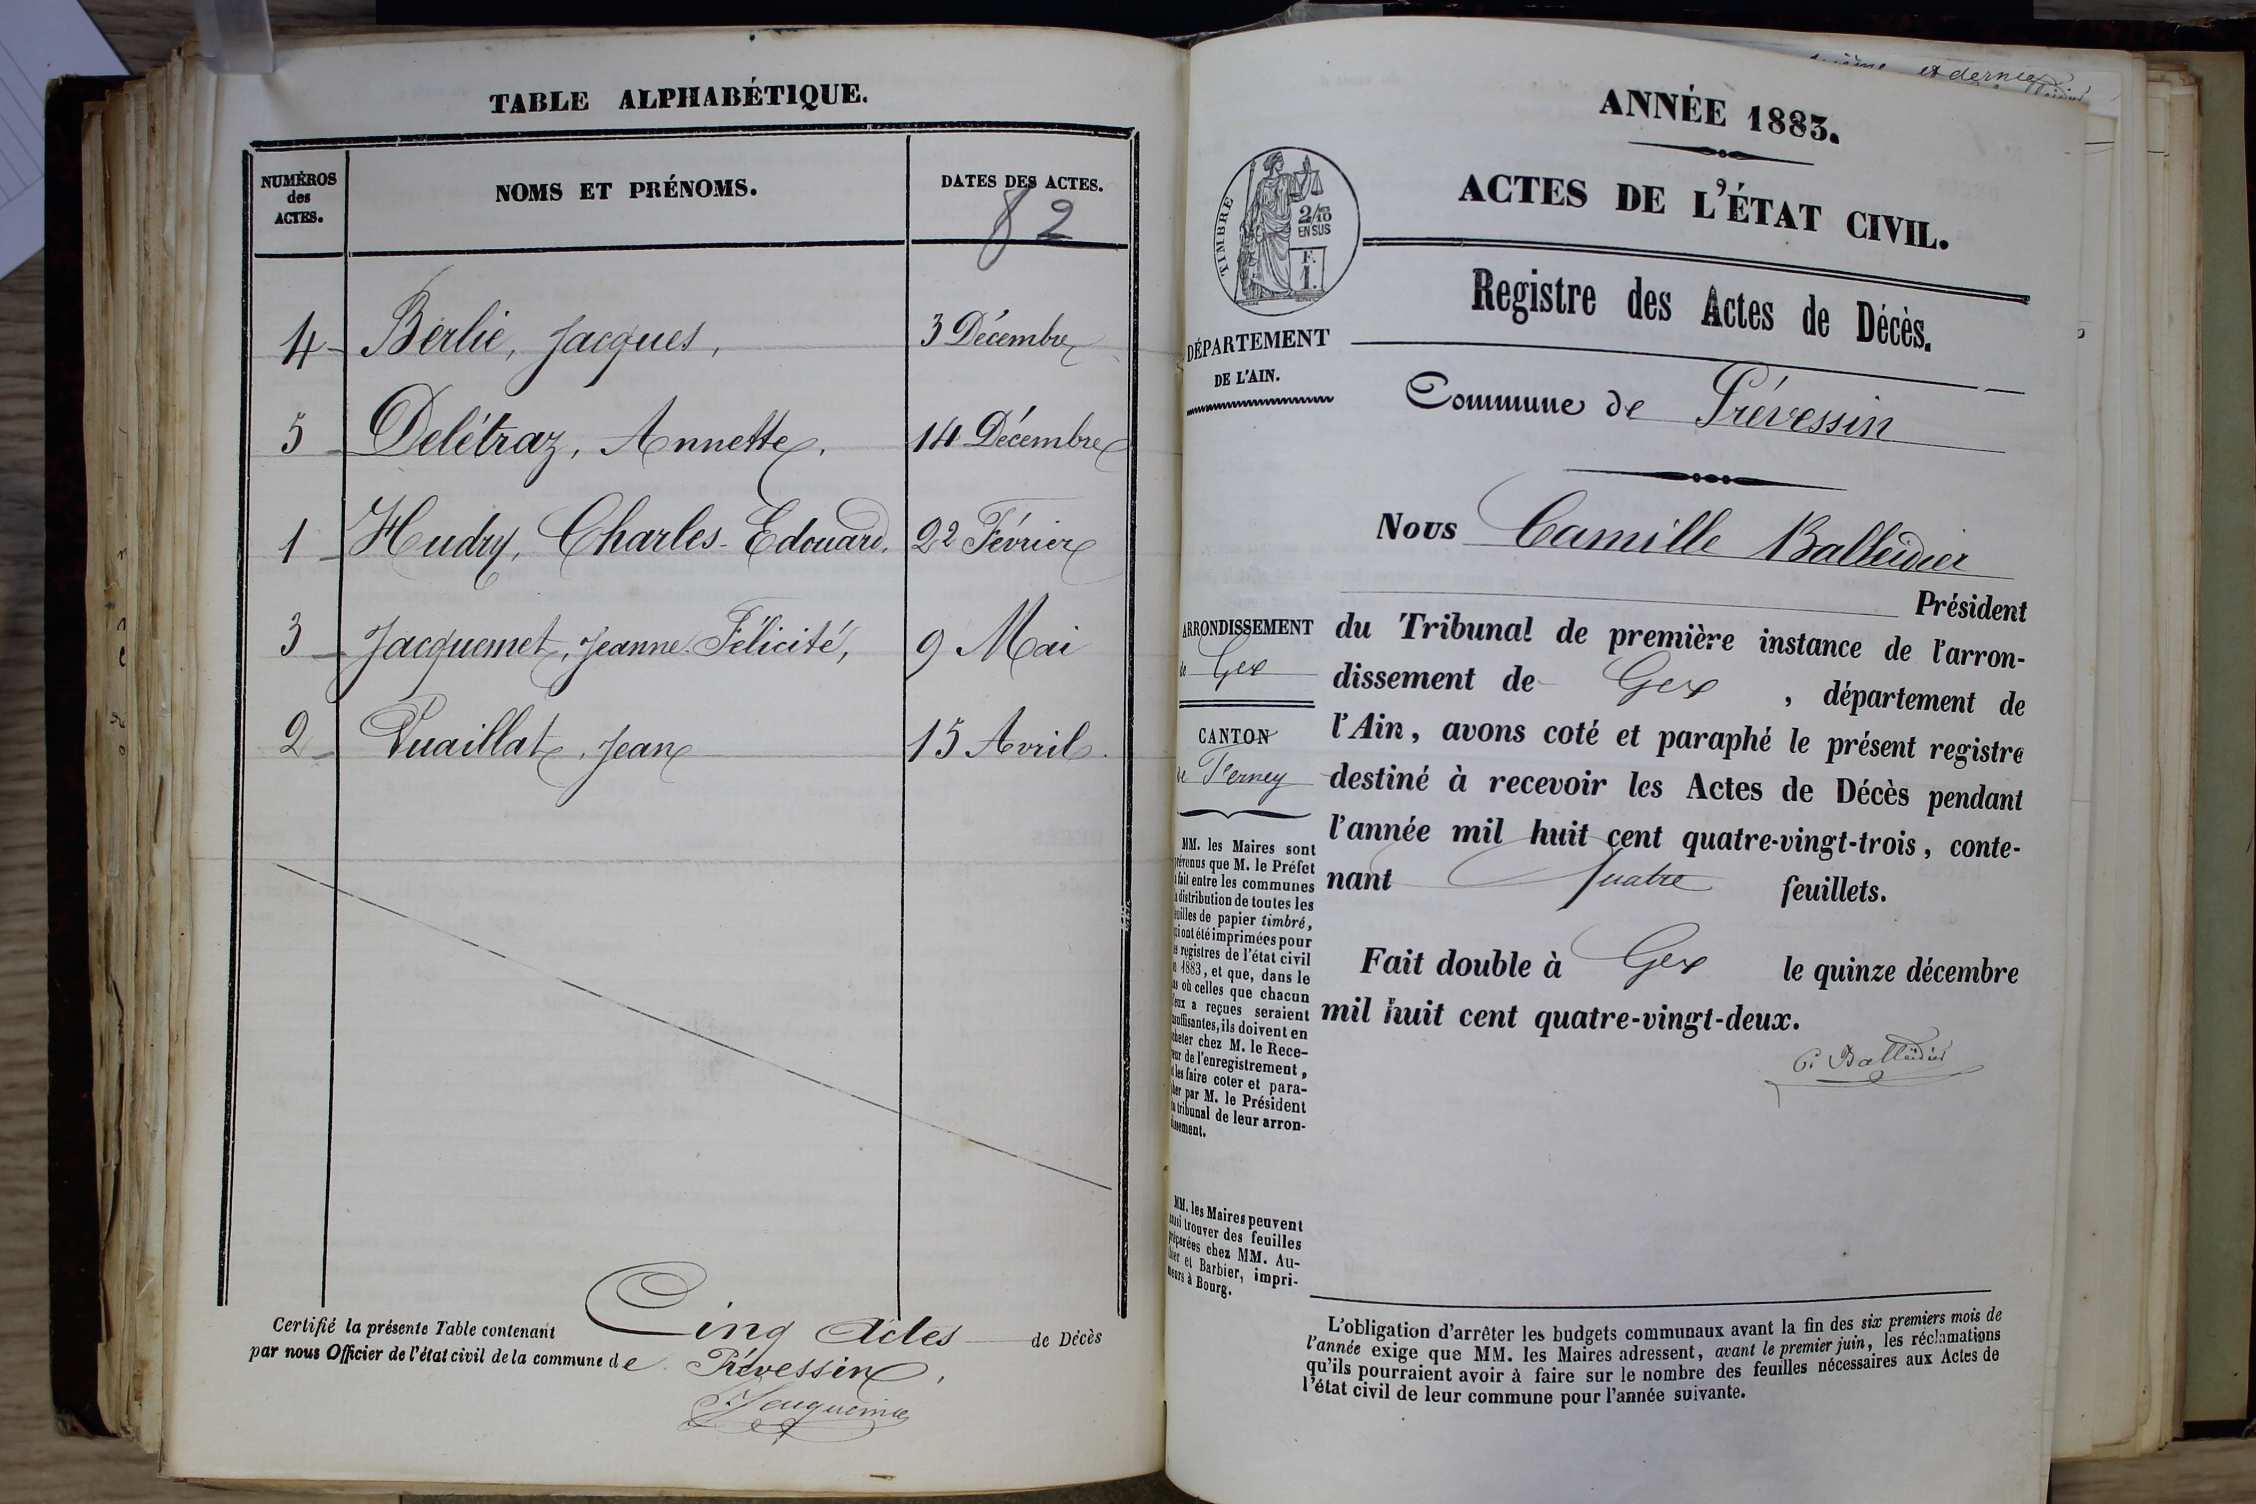 TABLE ALPHABÉTIQUE.
NUMÉROS
des
ACTES.
NOMS ET PRÉNOMS.
DATES DES ACTES.
82
4 Berlie, Jacques, 3 Décembre
5 Delétraz, Annette, 14 Décembre
1 Hudry, Charles-Edouard. 22 Février
3 Jacquemet, Jeanne Félicité, 9 Mai
2 Vuaillat, Jean 15 Avril
Certifié la présente Table contenant Cinq Actes de Décès
par nous Officier de l'état civil de la commune de Prévessin,
ANNÉE 1883.
ACTES DE L'ÉTAT CIVIL.
TIMBRE
2/10
EN SUS
F.
1.
Registre des Actes de Décès.
DÉPARTEMENT
DE L'AIN.
Commune de Prévessin
Nous Camille Balleidier
Président
ARRONDISSEMENT
de Gex
CANTON
de Ferney
du Tribunal de première instance de l'arron-
dissement de Gex, département de
l'Ain, avons coté et paraphé le présent registre
destiné à recevoir les Actes de Décès pendant
l'année mil huit cent quatre-vingt-trois, conte-
nant Quatre feuillets.
Fait double à Gex le quinze décembre
mil huit cent quatre-vingt-deux.
C. Balleidier
MM. les Maires sont
prévenus que M. le Préfet
a fait entre les communes
la distribution de toutes les
feuilles de papier timbré,
qui ont été imprimées pour
les registres de l'état civil
en 1883, et que, dans le
cas où celles que chacun
d'eux a reçues seraient
insuffisantes, ils doivent en
acheter chez M. le Rece-
veur de l'enregistrement,
et les faire coter et para-
pher par M. le Président
du tribunal de leur arron-
dissement.
MM. les Maires peuvent
aussi trouver des feuilles
préparées chez MM. Au-
thier et Barbier, impri-
meurs à Bourg.
L'obligation d'arrêter les budgets communaux avant la fin des six premiers mois de
l'année exige que MM. les Maires adressent, avant le premier juin, les réclamations
qu'ils pourraient avoir à faire sur le nombre des feuilles nécessaires aux Actes de
l'état civil de leur commune pour l'année suivante.
et dernier